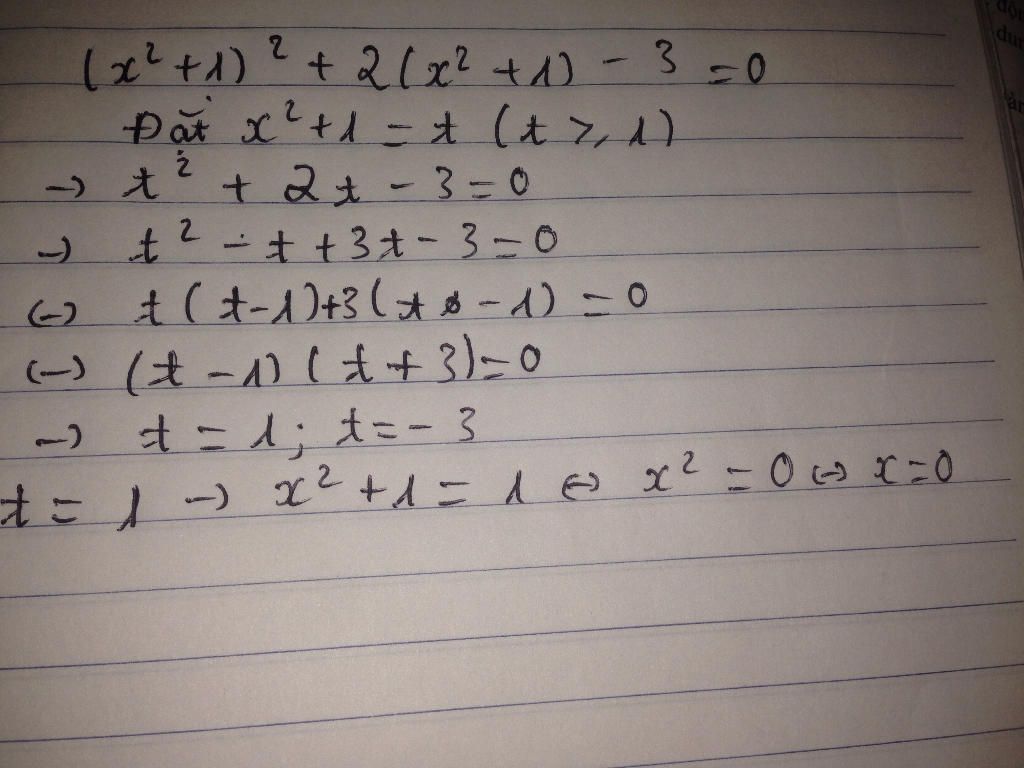 (x² + 1)² + 2(x² + 1) - 3 = 0
Đặt x² + 1 = t (t ≥ 1)
→ t² + 2t - 3 = 0
→ t² - t + 3t - 3 = 0
(→) t(t-1)+3(t - 1) = 0
(→) (t - 1)(t + 3) = 0
→ t = 1; t = - 3
t = 1 → x² + 1 = 1 ↔ x² = 0 ↔ x = 0